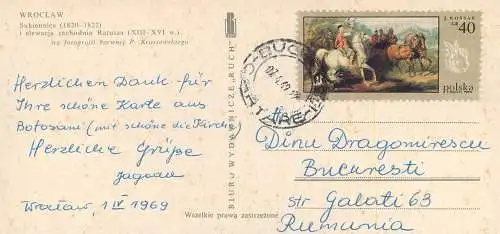 WROCŁAW
Sukiennice (1820-1822)
i elewacja zachodnia Ratusza (XIII-XVI w.)
wg fotografii barwnej P. Krassowskiego
Herzlichen Dank für
Ihre schöne Karte aus
Botosani (mit schöne die Kirch)
Herzliche Grüße
Jagoda
Wrocław, 1 IV 1969
BIURO WYDAWNICZE „RUCH"
Wszelkie prawa zastrzeżone
J. KOSSAK
GR 40
polska
Dinu Dragomirescu
Bucuresti
str Galati 63
Rumania